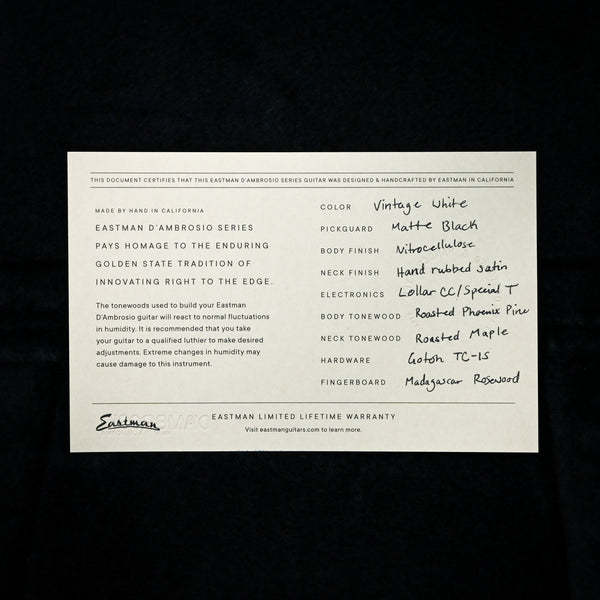 THIS DOCUMENT CERTIFIES THAT THIS EASTMAN D'AMBROSIO SERIES GUITAR WAS DESIGNED & HANDCRAFTED BY EASTMAN IN CALIFORNIA
MADE BY HAND IN CALIFORNIA
EASTMAN D'AMBROSIO SERIES
PAYS HOMAGE TO THE ENDURING
GOLDEN STATE TRADITION OF
INNOVATING RIGHT TO THE EDGE.
The tonewoods used to build your Eastman
D'Ambrosio guitar will react to normal fluctuations
in humidity. It is recommended that you take
your guitar to a qualified luthier to make desired
adjustments. Extreme changes in humidity may
cause damage to this instrument.
COLOR Vintage White
PICKGUARD Matte Black
BODY FINISH Nitrocellulose
NECK FINISH Hand rubbed satin
ELECTRONICS Lollar CC/Special T
BODY TONEWOOD Roasted Phoenix Pine
NECK TONEWOOD Roasted Maple
HARDWARE Gotoh TC-1S
FINGERBOARD Madagascar Rosewood
Eastman
EASTMAN LIMITED LIFETIME WARRANTY
Visit eastmanguitars.com to learn more.